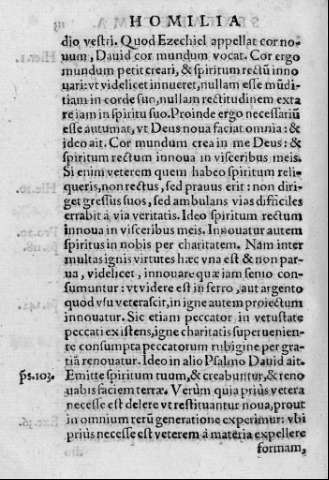 HOMILIA
dio vestri. Quod Ezechiel appellat cor no-
uum, Dauid cor mundum vocat. Cor ergo
mundum petit creari, & spiritum rectū inno
uari: vt videlicet innueret, nullam esse mūdi
tiam in corde suo, nullam rectitudinem exta
re iam in spiritu suo. Proinde ergo necessariū
esse autumat, vt Deus noua faciat omnia: &
ideo ait. Cor mundum crea in me Deus: &
spiritum rectum innoua in visceribus meis.
Si enim veterem quem habeo spiritum reli-
queris, non rectus, sed prauus erit: non diri-
get gressus suos, sed ambulans vias difficiles
errabit à via veritatis. Ideo spiritum rectum
innoua in visceribus meis. Innouatur autem
spiritus in nobis per charitatem. Nam inter
multas ignis virtutes hæc vna est & non par-
ua, videlicet, innouare quæ iam senio consu-
muntur: vt videre est in ferro, aut argento
quod vsu veterascit, in igne autem proiectum
innouatur. Sic etiam peccator in vetustate
peccati existens, igne charitatis superuenien-
te consumpta peccatorum rubigine per gra-
tiā renouatur. Ideo in alio Psalmo Dauid ait.
ps.103. Emitte spiritum tuum, & creabuntur, & reno
uabis faciem terræ. Verùm quia priùs vetera
necesse est delere vt restituantur noua, prout
in omnium rerū generatione experimur: vbi
priùs necesse est veterem à materia expellere
formam,